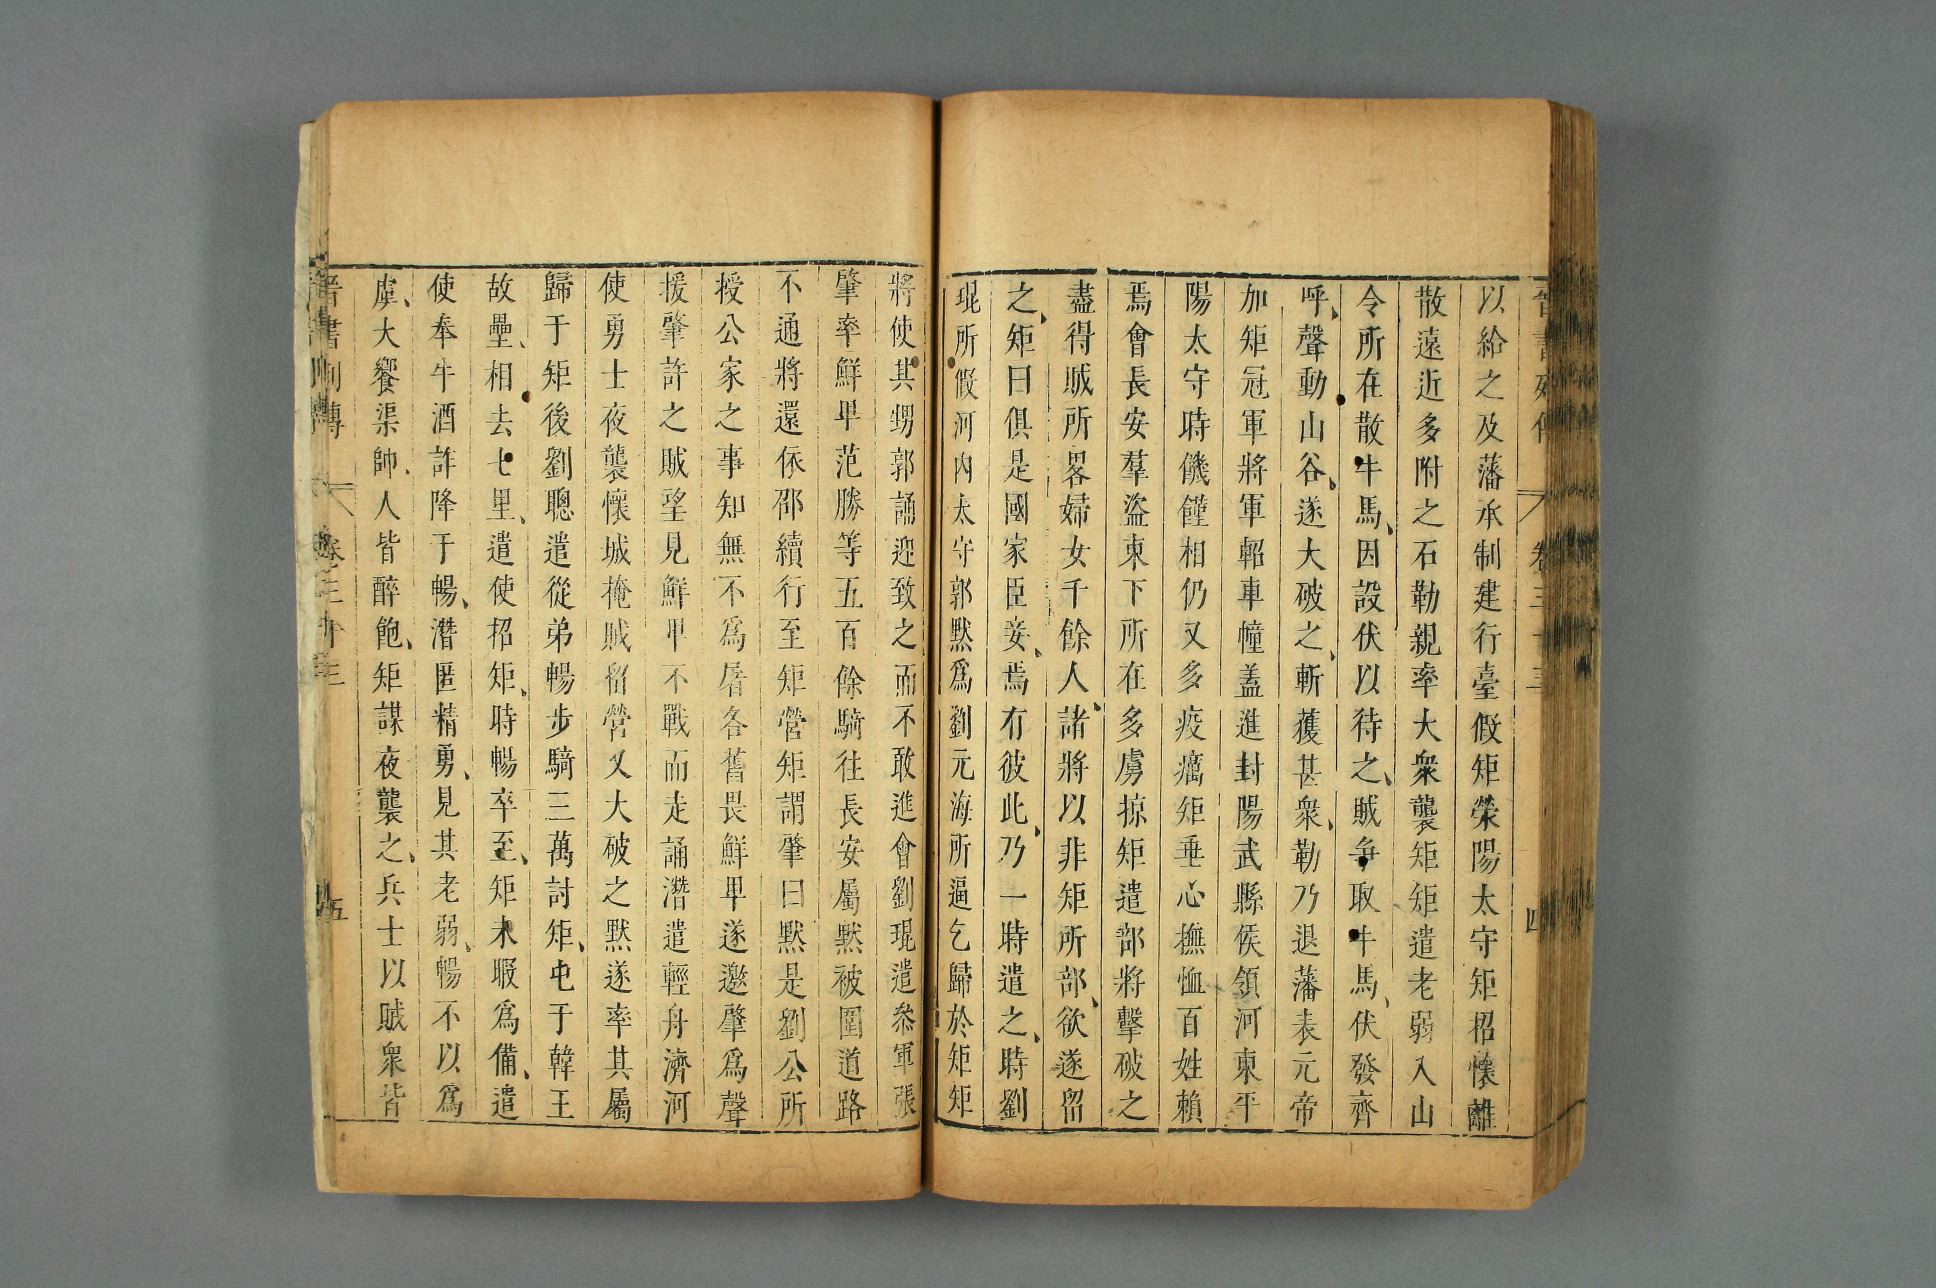 晉書列傳 卷三十三 四
以給之及藩承制建行臺假矩滎陽太守矩招懷離
散遠近多附之石勒親率大衆襲矩矩遣老弱入山
令所在散牛馬、因設伏以待之、賊爭取牛馬、伏發齊
呼、聲動山谷、遂大破之、斬獲甚衆、勒乃退藩表元帝
加矩冠軍將軍軺車幢蓋進封陽武縣侯領河東平
陽太守時饑饉相仍又多疫癘矩垂心撫恤百姓賴
焉會長安羣盜東下所在多虜掠矩遣部將擊破之
盡得賊所畧婦女千餘人、諸將以非矩所部、欲遂畱
之、矩曰俱是國家臣妾、焉有彼此、乃一時遣之、時劉
琨所假河內太守郭默爲劉元海所逼乞歸於矩矩
將使其甥郭誦迎致之而不敢進會劉琨遣叅軍張
肇率鮮卑范勝等五百餘騎往長安屬默被圍道路
不通將還依邵續行至矩營矩謂肇曰默是劉公所
授公家之事知無不爲屠各舊畏鮮卑遂邀肇爲聲
援肇許之賊望見鮮卑不戰而走誦潛遣輕舟濟河
使勇士夜襲懷城掩賊畱營又大破之默遂率其屬
歸于矩後劉聰遣從弟暢步騎三萬討矩、屯于韓王
故壘、相去七里、遣使招矩、時暢卒至、矩未暇爲備、遣
使奉牛酒詐降于暢、潛匿精勇、見其老弱、暢不以爲
虞、大饗渠帥、人皆醉飽、矩謀夜襲之、兵士以賊衆皆
晉書列傳 卷三十三 五